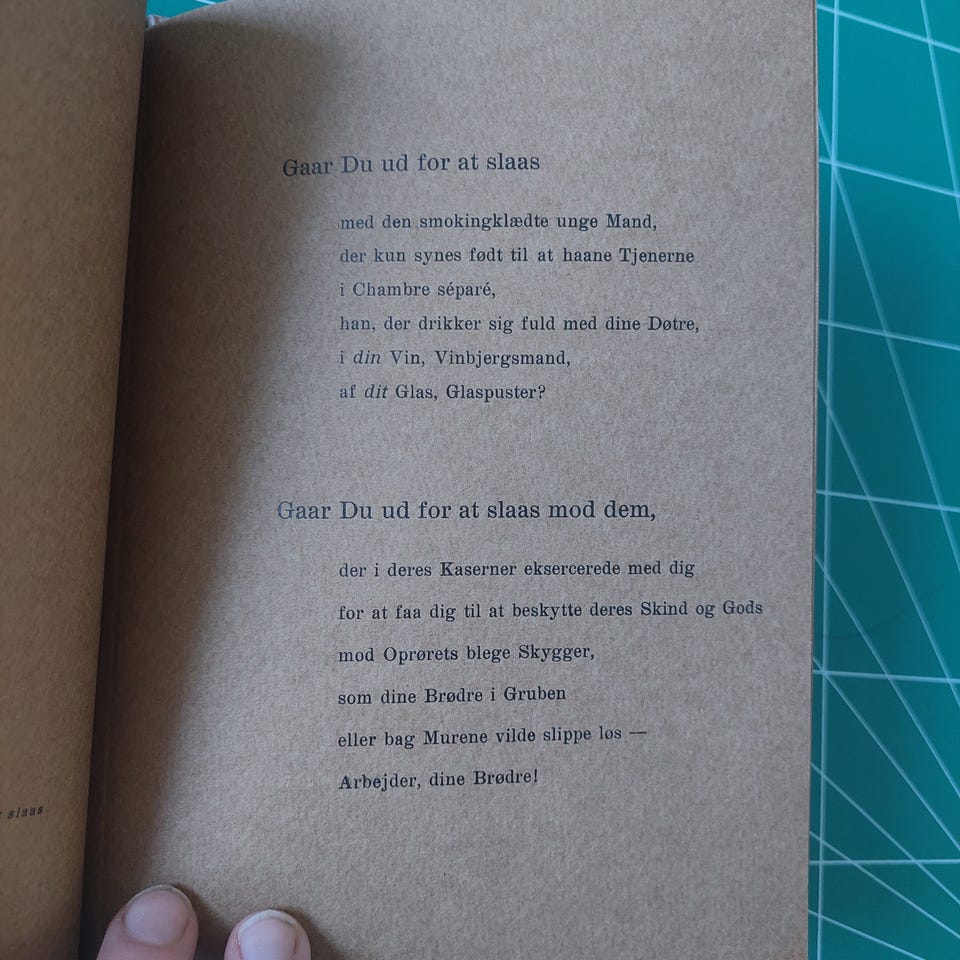 Gaar Du ud for at slaas
med den smokingklædte unge Mand,
der kun synes født til at haane Tjenerne
i Chambre séparé,
han, der drikker sig fuld med dine Døtre,
i din Vin, Vinbjergsmand,
af dit Glas, Glaspuster?
Gaar Du ud for at slaas mod dem,
der i deres Kaserner eksercerede med dig
for at faa dig til at beskytte deres Skind og Gods
mod Oprørets blege Skygger,
som dine Brødre i Gruben
eller bag Murene vilde slippe løs —
Arbejder, dine Brødre!
slaas